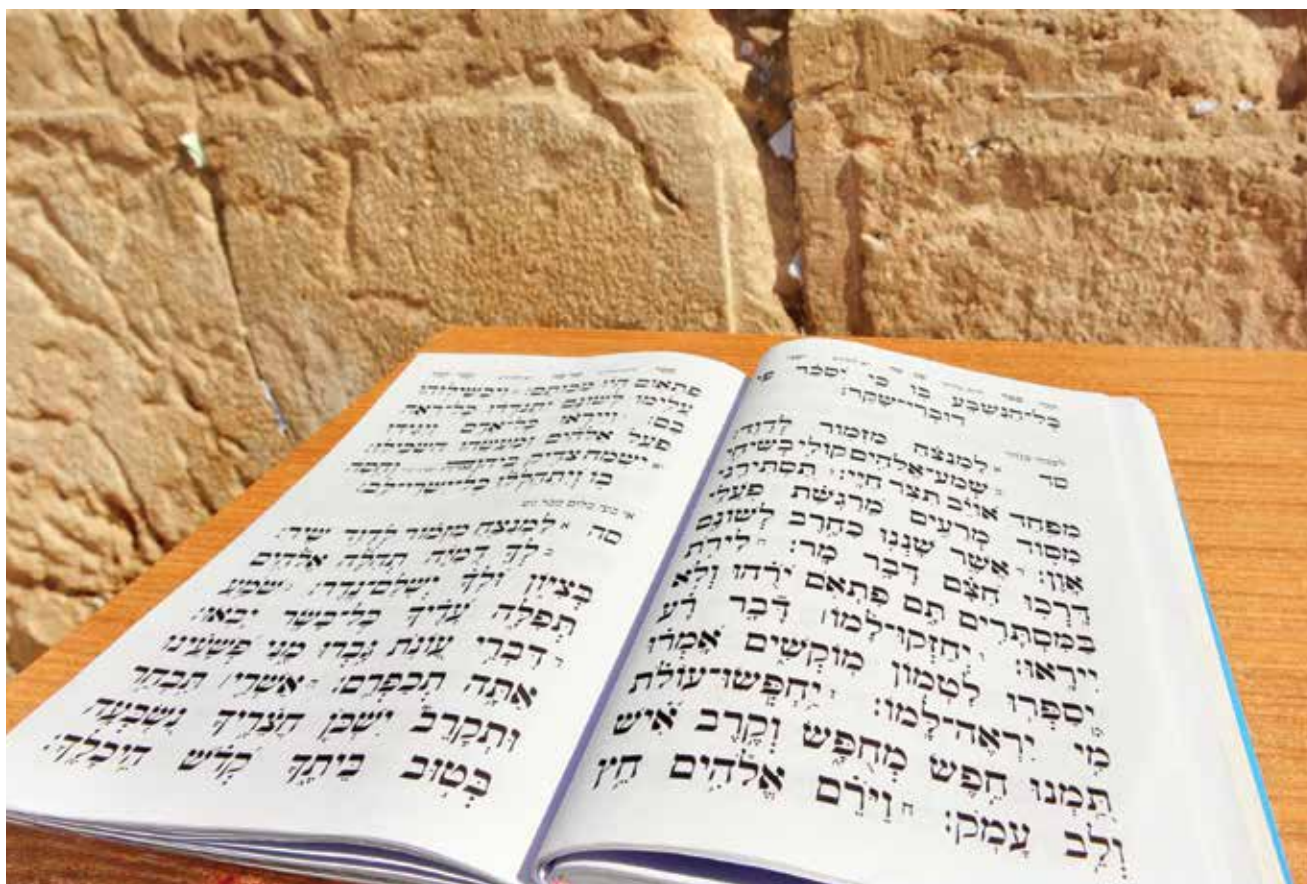 כָּל־הַנִּשְׁבָּע בּוֹ כִּי יִסָּכֵר פִּי
דוֹבְרֵי־שָׁקֶר׃
סד א לַמְנַצֵּחַ מִזְמוֹר לְדָוִד׃
ב שְׁמַע־אֱלֹהִים קוֹלִי בְשִׂיחִי
מִפַּחַד אוֹיֵב תִּצֹּר חַיָּי׃ ג תַּסְתִּירֵנִי
מִסּוֹד מְרֵעִים מֵרִגְשַׁת פֹּעֲלֵי
אָוֶן׃ ד אֲשֶׁר שָׁנְנוּ כַחֶרֶב לְשׁוֹנָם
דָּרְכוּ חִצָּם דָּבָר מָר׃ ה לִירֹת
בַּמִּסְתָּרִים תָּם פִּתְאֹם יֹרֻהוּ וְלֹא
יִירָאוּ׃ ו יְחַזְּקוּ־לָמוֹ דָּבָר רָע
יְסַפְּרוּ לִטְמוֹן מוֹקְשִׁים אָמְרוּ
מִי יִרְאֶה־לָּמוֹ׃ ז יַחְפְּשׂוּ־עוֹלֹת
תַּמְנוּ חֵפֶשׂ מְחֻפָּשׂ וְקֶרֶב אִישׁ
וְלֵב עָמֹק׃ ח וַיֹּרֵם אֱלֹהִים חֵץ
פִּתְאוֹם הָיוּ מַכּוֹתָם׃ ט וַיַּכְשִׁילוּהוּ
עָלֵימוֹ לְשׁוֹנָם יִתְנֹדֲדוּ כָּל־רֹאֵה
בָם׃ י וַיִּירְאוּ כָּל־אָדָם וַיַּגִּידוּ
פֹּעַל אֱלֹהִים וּמַעֲשֵׂהוּ הִשְׂכִּילוּ׃
יא יִשְׂמַח צַדִּיק בַּיהוָה וְחָסָה
בוֹ וְיִתְהַלְלוּ כָּל־יִשְׁרֵי־לֵב׃
סה א לַמְנַצֵּחַ מִזְמוֹר לְדָוִד שִׁיר׃
ב לְךָ דֻמִיָּה תְהִלָּה אֱלֹהִים
בְּצִיּוֹן וּלְךָ יְשֻׁלַּם־נֶדֶר׃ ג שֹׁמֵעַ
תְּפִלָּה עָדֶיךָ כָּל־בָּשָׂר יָבֹאוּ׃
ד דִּבְרֵי עֲוֺנֹת גָּבְרוּ מֶנִּי פְּשָׁעֵינוּ
אַתָּה תְכַפְּרֵם׃ ה אַשְׁרֵי תִּבְחַר
וּתְקָרֵב יִשְׁכֹּן חֲצֵרֶיךָ נִשְׂבְּעָה
בְּטוּב בֵּיתֶךָ קְדֹשׁ הֵיכָלֶךָ׃